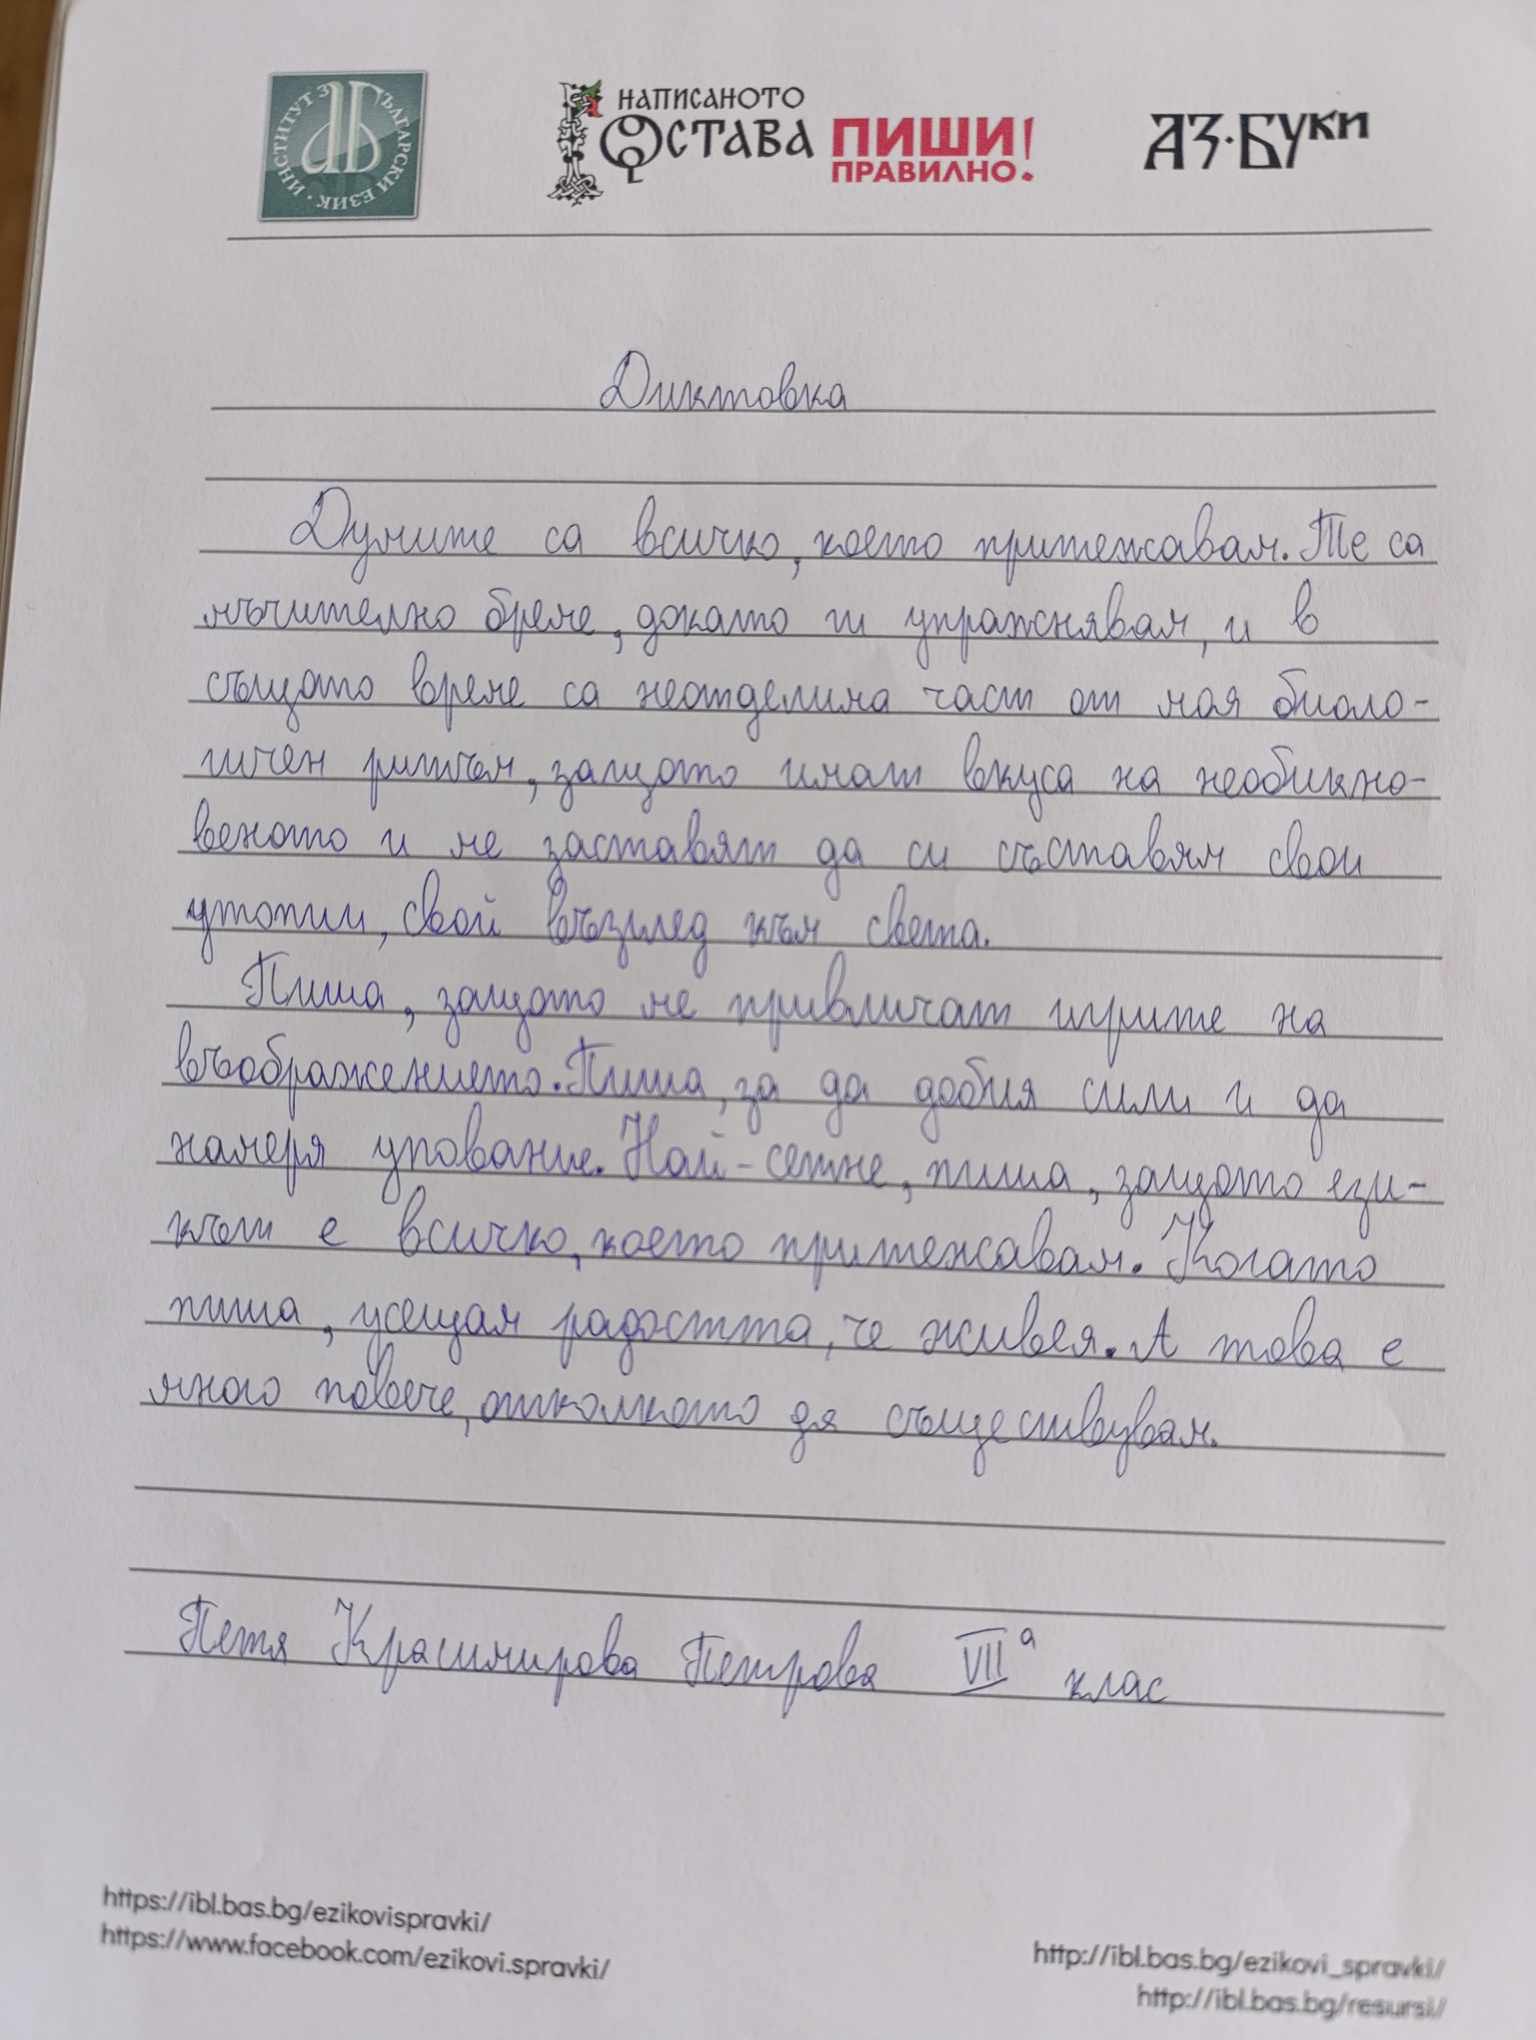 ИНСТИТУТ ЗА БЪЛГАРСКИ ЕЗИК
НАПИСАНОТО
ОСТАВА ПИШИ
ПРАВИЛНО!
АЗ·БУКИ
Диктовка
Думите са всичко, което притежавам. Те са
мъчително бреме, докато ги упражнявам, и в
същото време са неотделима част от моя биоло-
гичен ритъм, защото имат вкуса на необикно-
веното и ме заставят да си съставям свои
утопии, свой възглед към света.
Пиша, защото ме привличат игрите на
въображението. Пиша, за да добия сили и да
намеря упование. Най-сетне, пиша, защото ези-
кът е всичко, което притежавам. Когато
пиша, усещам радостта, че живея. А това е
много повече, отколкото дя съществувам.
Петя Красимирова Петрова VII а клас
https://ibl.bas.bg/ezikovispravki/
https://www.facebook.com/ezikovi.spravki/
http://ibl.bas.bg/ezikovi_spravki/
http://ibl.bas.bg/resursi/